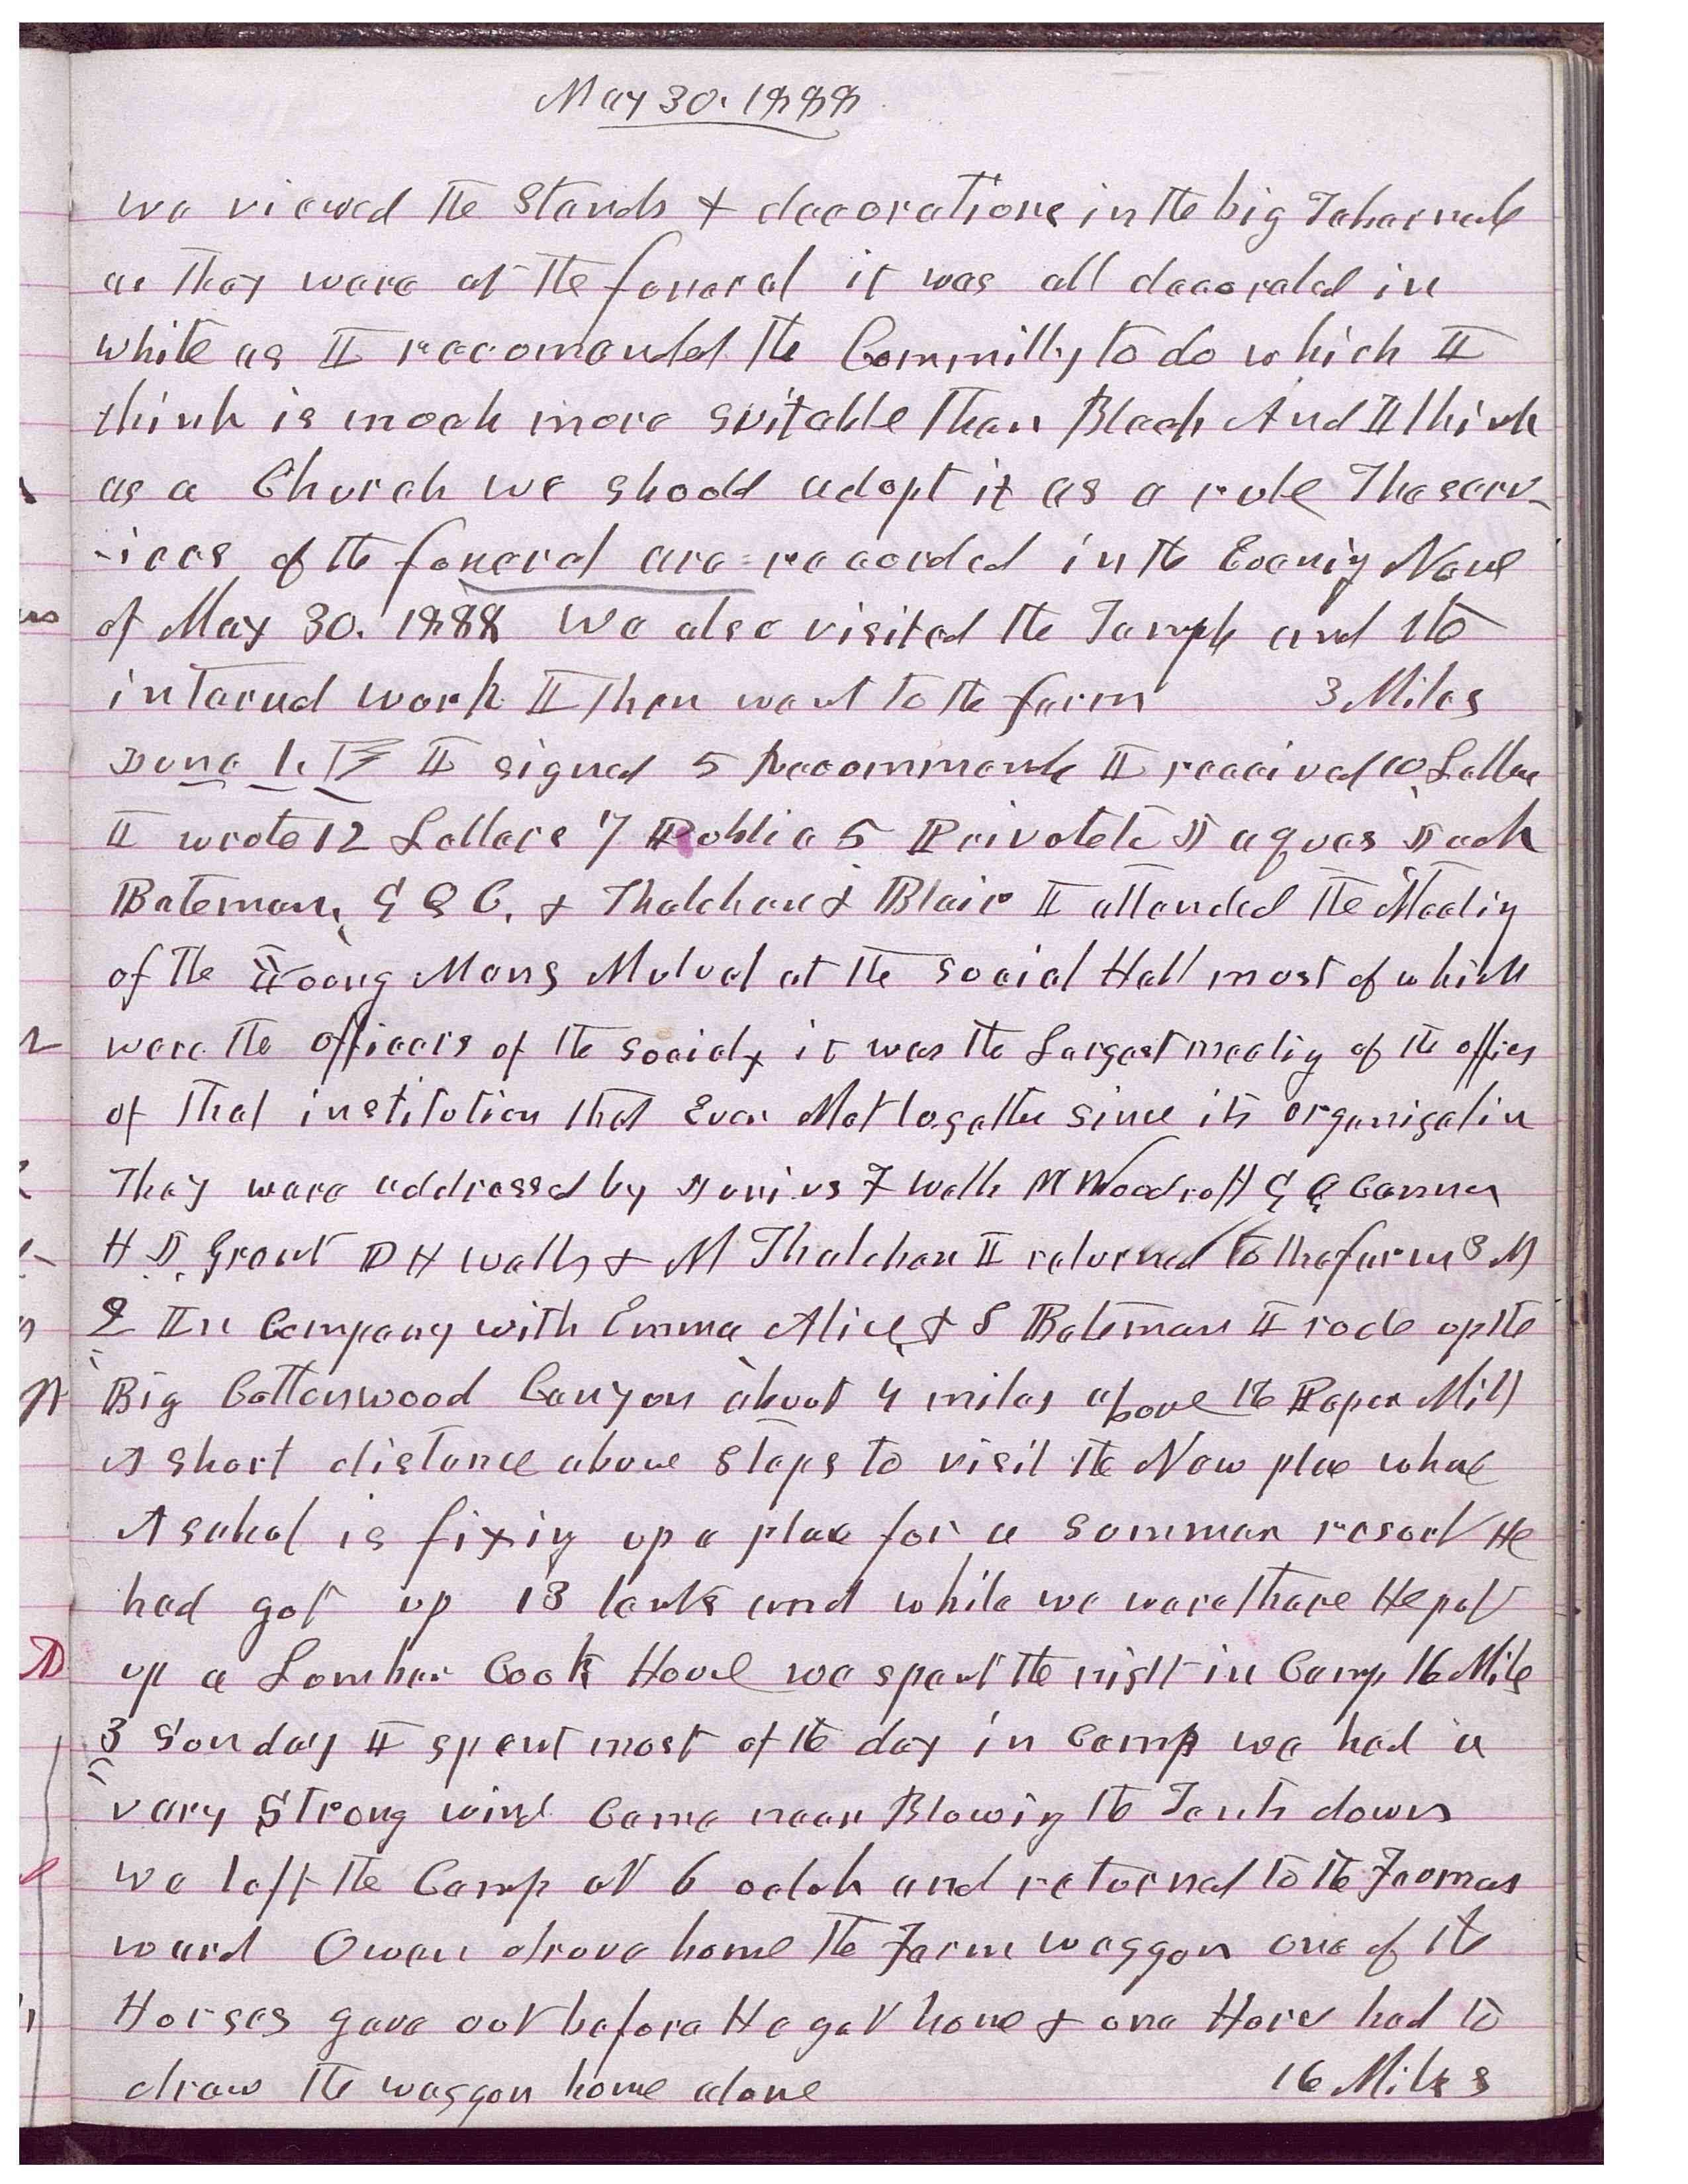 May 30. 1888
we viewed the Stands & decorations in the big Tabernacle
as they were at the funeral it was all decorated in
white as I recomended the Committy to do which I
think is much more suitable than Black And I think
as a Church we should adopt it as a rule The serv-
-ices of the funeral are recorded in the Evening News
of May 30. 1888 We also visited the Temple and the
internal work I then went to the farm 3 Miles
June 1. I signed 5 Recommends I received 10 Letters
I wrote 12 Letters 7 Public 5 Private to Jaques Jack
Bateman, G Q C. & Thatcher & Blair I attended the Meeting
of the Young Mens Mutual at the Social Hall most of which
were the officers of the Society it was the Largest meeting of the offices
of that institution that Ever Met togather since its organization
They were addressed by Junius F Wells W Woodruff G Q Cannon
H J Grant D H Wells & M Thatcher I returned to the farm 3 M
2 In Company with Emma Alice & S Bateman I rode up the
Big Cottonwood Canyon about 4 miles above the Paper Mill
A short distance above Steps to visit the New place whare
Asahel is fixing up a place for a summer resort He
had got up 13 tents and while we were thare He put
up a Lumber Cook House we spent the night in Camp 16 Mile
3 Sunday I spent most of the day in Camp we had a
very Strong wind Came near Blowing the Tents down
we left the Camp at 6 oclok and returned to the Farmers
ward Owen drove home the Farm waggon one of the
Horses gave out before He got home & one Hors had to
draw the waggon home alone 16 Miles